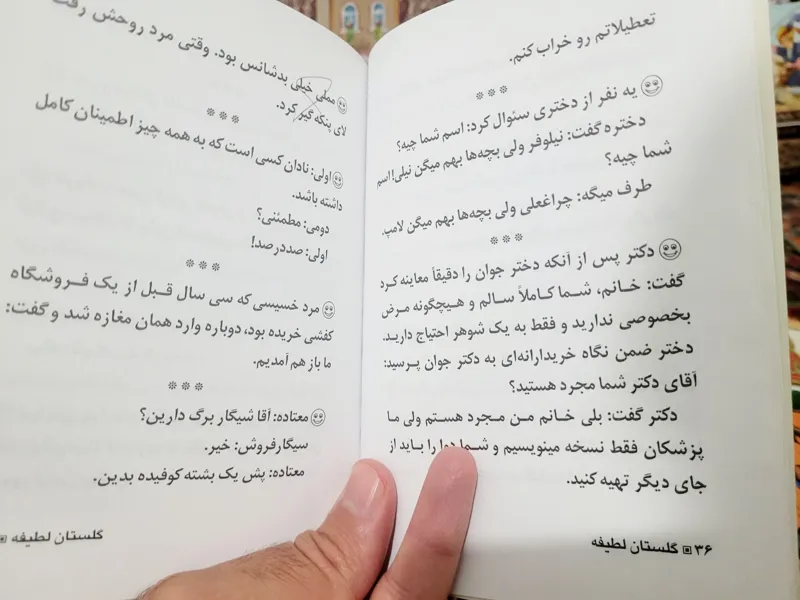 تعطیلاتم رو خراب کنم.
***
یه نفر از دختری سئوال کرد: اسم شما چیه؟
دختره گفت: نیلوفر ولی بچه‌ها بهم میگن نیلی! اسم
شما چیه؟
طرف میگه: چراغعلی ولی بچه‌ها بهم میگن لامپ.
***
دکتر پس از آنکه دختر جوان را دقیقاً معاینه کرد
گفت: خانم، شما کاملاً سالم و هیچگونه مرض
بخصوصی ندارید و فقط به یک شوهر احتیاج دارید.
دختر ضمن نگاه خریدارانه‌ای به دکتر جوان پرسید:
آقای دکتر شما مجرد هستید؟
دکتر گفت: بلی خانم من مجرد هستم ولی ما
پزشکان فقط نسخه مینویسیم و شما دوا را باید از
جای دیگر تهیه کنید.
۳۶ گلستان لطیفه
مملی خیلی بدشانس بود. وقتی مرد روحش رفت
لای پنکه گیر کرد.
***
اولی: نادان کسی است که به همه چیز اطمینان کامل
داشته باشد.
دومی: مطمئنی؟
اولی: صددرصد!
***
مرد خسیسی که سی سال قبل از یک فروشگاه
کفشی خریده بود، دوباره وارد همان مغازه شد و گفت:
ما باز هم آمدیم.
***
معتاده: آقا شیگار برگ دارین؟
سیگارفروش: خیر.
معتاده: پش یک بشته کوفیده بدین.
گلستان لطیفه